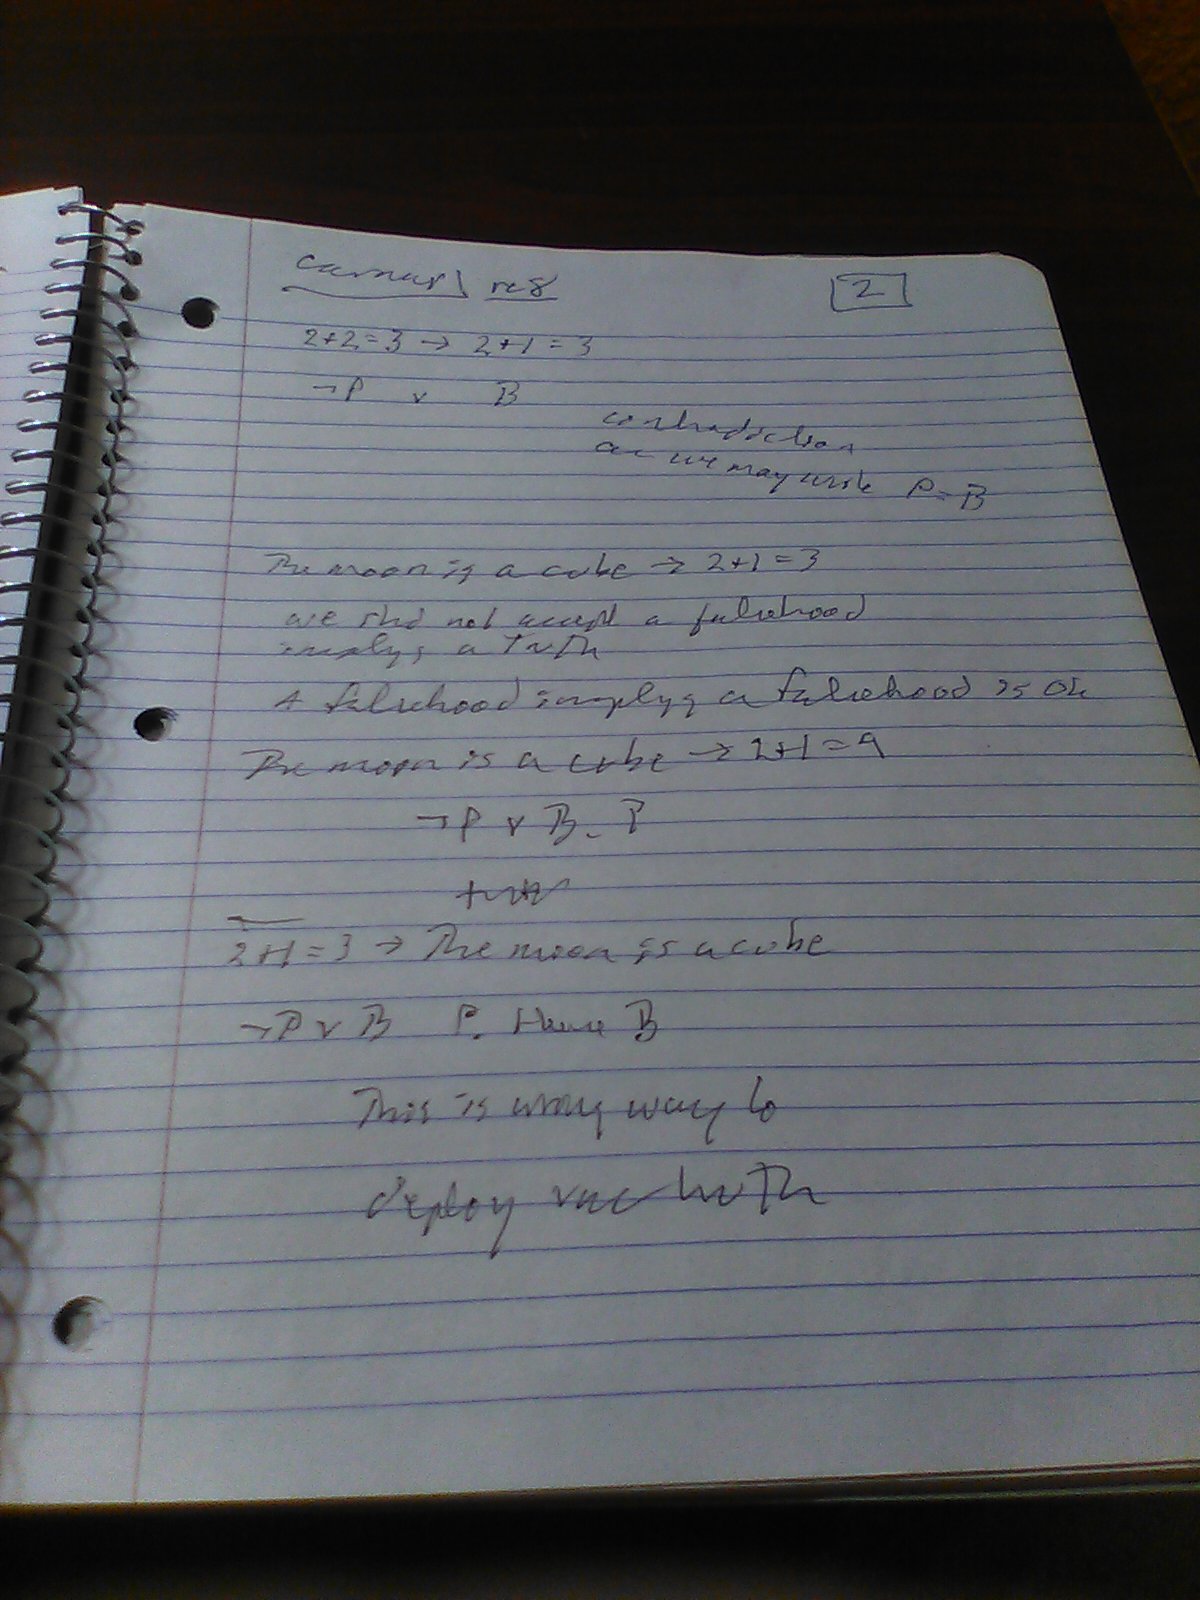 2
2+2=3 → 2+1=3
¬P v B
contradiction
as we may write P = B
The moon is a cube → 2+1=3
we shd not accept a falsehood
implyg a truth
A falsehood implyg a falsehood is ok
The moon is a cube → 2+1=9
¬P v B. P
2+1=3 → The moon is a cube
¬P v B P. Hence B
This is wrong way to
deploy vac truth